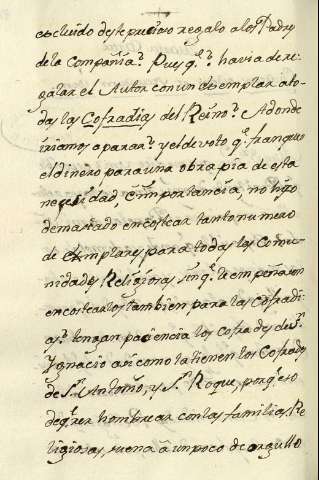 escluido deste precioso regalo a los Padrs
de la Compañia? Pues q.e? havia de re-
galar el Autor con un exemplar a to-
das las Cofradias del Reino? Adonde
iriamos a parar? y el devoto q.e franqueo
el dinero para una obra pia de esta
necesidad, e importancia, no hizo
demasiado en costear tanto numero
de exemplares para todas las Comu-
nidades Religiosas sin q.e le empeñasen
en costearlos tambien para las Cofradi-
as? tengan paciencia los Cofrades de S.n
Ygnacio asi como la tienen los Cofrades
de S.n Antonio, y S.n Roque, porq.e eso
de q.rer hombrear con las familias Re-
ligiosas, suena â un poco de orgullo